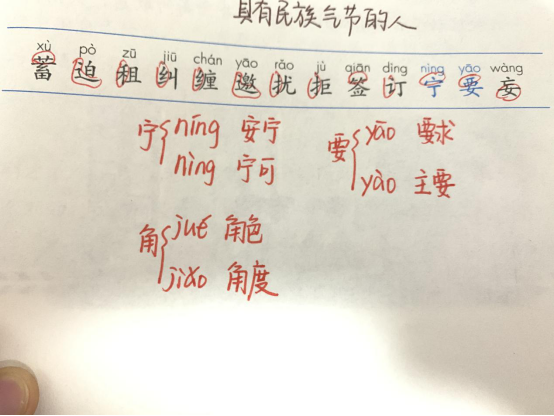 具有民族气节的人
xù pò zū jiū chán yāo rǎo jù qiān dìng nìng yāo wàng
蓄 迫 租 纠 缠 邀 扰 拒 签 订 宁 要 妄
宁 níng 安宁
nìng 宁可
要 yāo 要求
yào 主要
角 jué 角色
jiǎo 角度